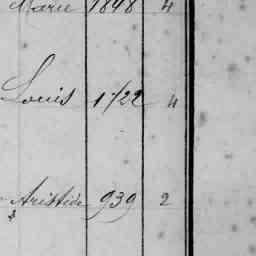 Marie 1848 4
Louis 1722 4
Aristide 939 2